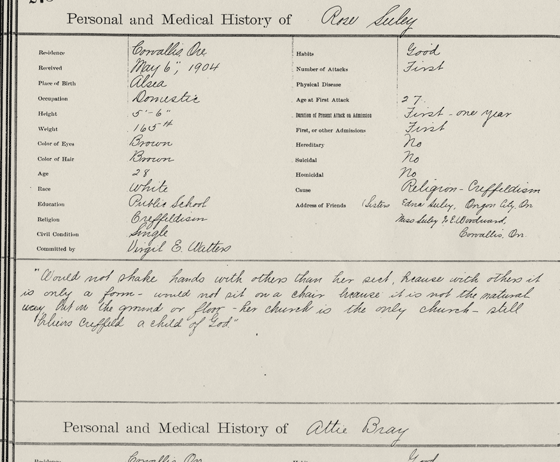 Personal and Medical History of Rose Seeley
Residence Corvallis Ore
Received May 6", 1904
Place of Birth Alsea
Occupation Domestic
Height 5'-6"
Weight 165 #
Color of Eyes Brown
Color of Hair Brown
Age 28
Race White
Education Public School
Religion Creffeldism
Civil Condition Single
Committed by Virgil E. Watters
Habits Good
Number of Attacks First
Physical Disease
Age at First Attack 27
Duration of Present Attack on Admission First - one year
First, or other Admissions First
Hereditary No
Suicidal No
Homicidal No
Cause Religion - Creffeldism
Address of Friends (Sisters Edna Seeley, Oregon City, Or.
Miss Seeley % E Woodward,
Corvallis, Or.
"Would not shake hands with others than her sect, because with others it
is only a form - would not sit on a chair because it is not the natural
way but on the ground or floor - her church is the only church - still
believes Creffeld a child of God"
Personal and Medical History of Attie Bray
Residence Corvallis Or.
Good